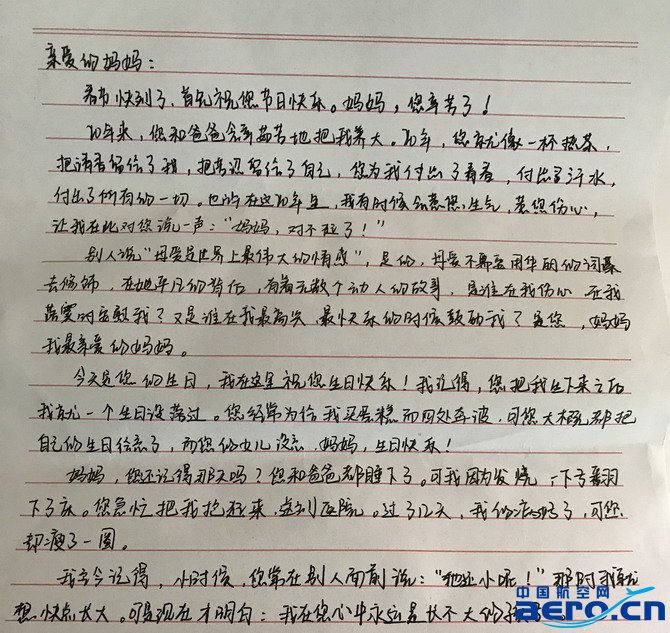 亲爱的妈妈：
春节快到了，首先祝您节日快乐。妈妈，您辛苦了！
20年来，您和爸爸含辛茹苦地把我养大。20年，您就像一杯热茶，
把清香留给了我，把苦涩留给了自己，您为我付出了青春，付出了汗水，
付出了所有的一切。也许在这20年里，我有时候会惹您生气，惹您伤心，
让我在此对您说一声："妈妈，对不起了！"
别人说"母爱是世界上最伟大的情感"，是的，母爱不需要用华丽的词藻
去修饰，在她平凡的背后，有着无数个动人的故事，是谁在我伤心 在我
落寞时安慰我？又是谁在我最高兴、最快乐的时候鼓励我？是您，妈妈
我最亲爱的妈妈。
今天是您的生日，我在这里祝您生日快乐！我记得，您把我生下来之后
我就一个生日没落过。您经常为给我买蛋糕而四处奔波，可您大概都把
自己的生日给忘了，而您的女儿没忘，妈妈，生日快乐！
妈妈，您还记得那天吗？您和爸爸都睡下了。可我因为发烧 一下子翻
下了床。您急忙把我抱起来，送到医院。过了几天，我的病好了，可您
却瘦了一圈。
我至今记得，小时候，您常在别人面前说："她还小呢！"那时我就
想快点长大。可是现在才明白：我在您心中永远是长不大的孩子
中国航空网
aero.cn